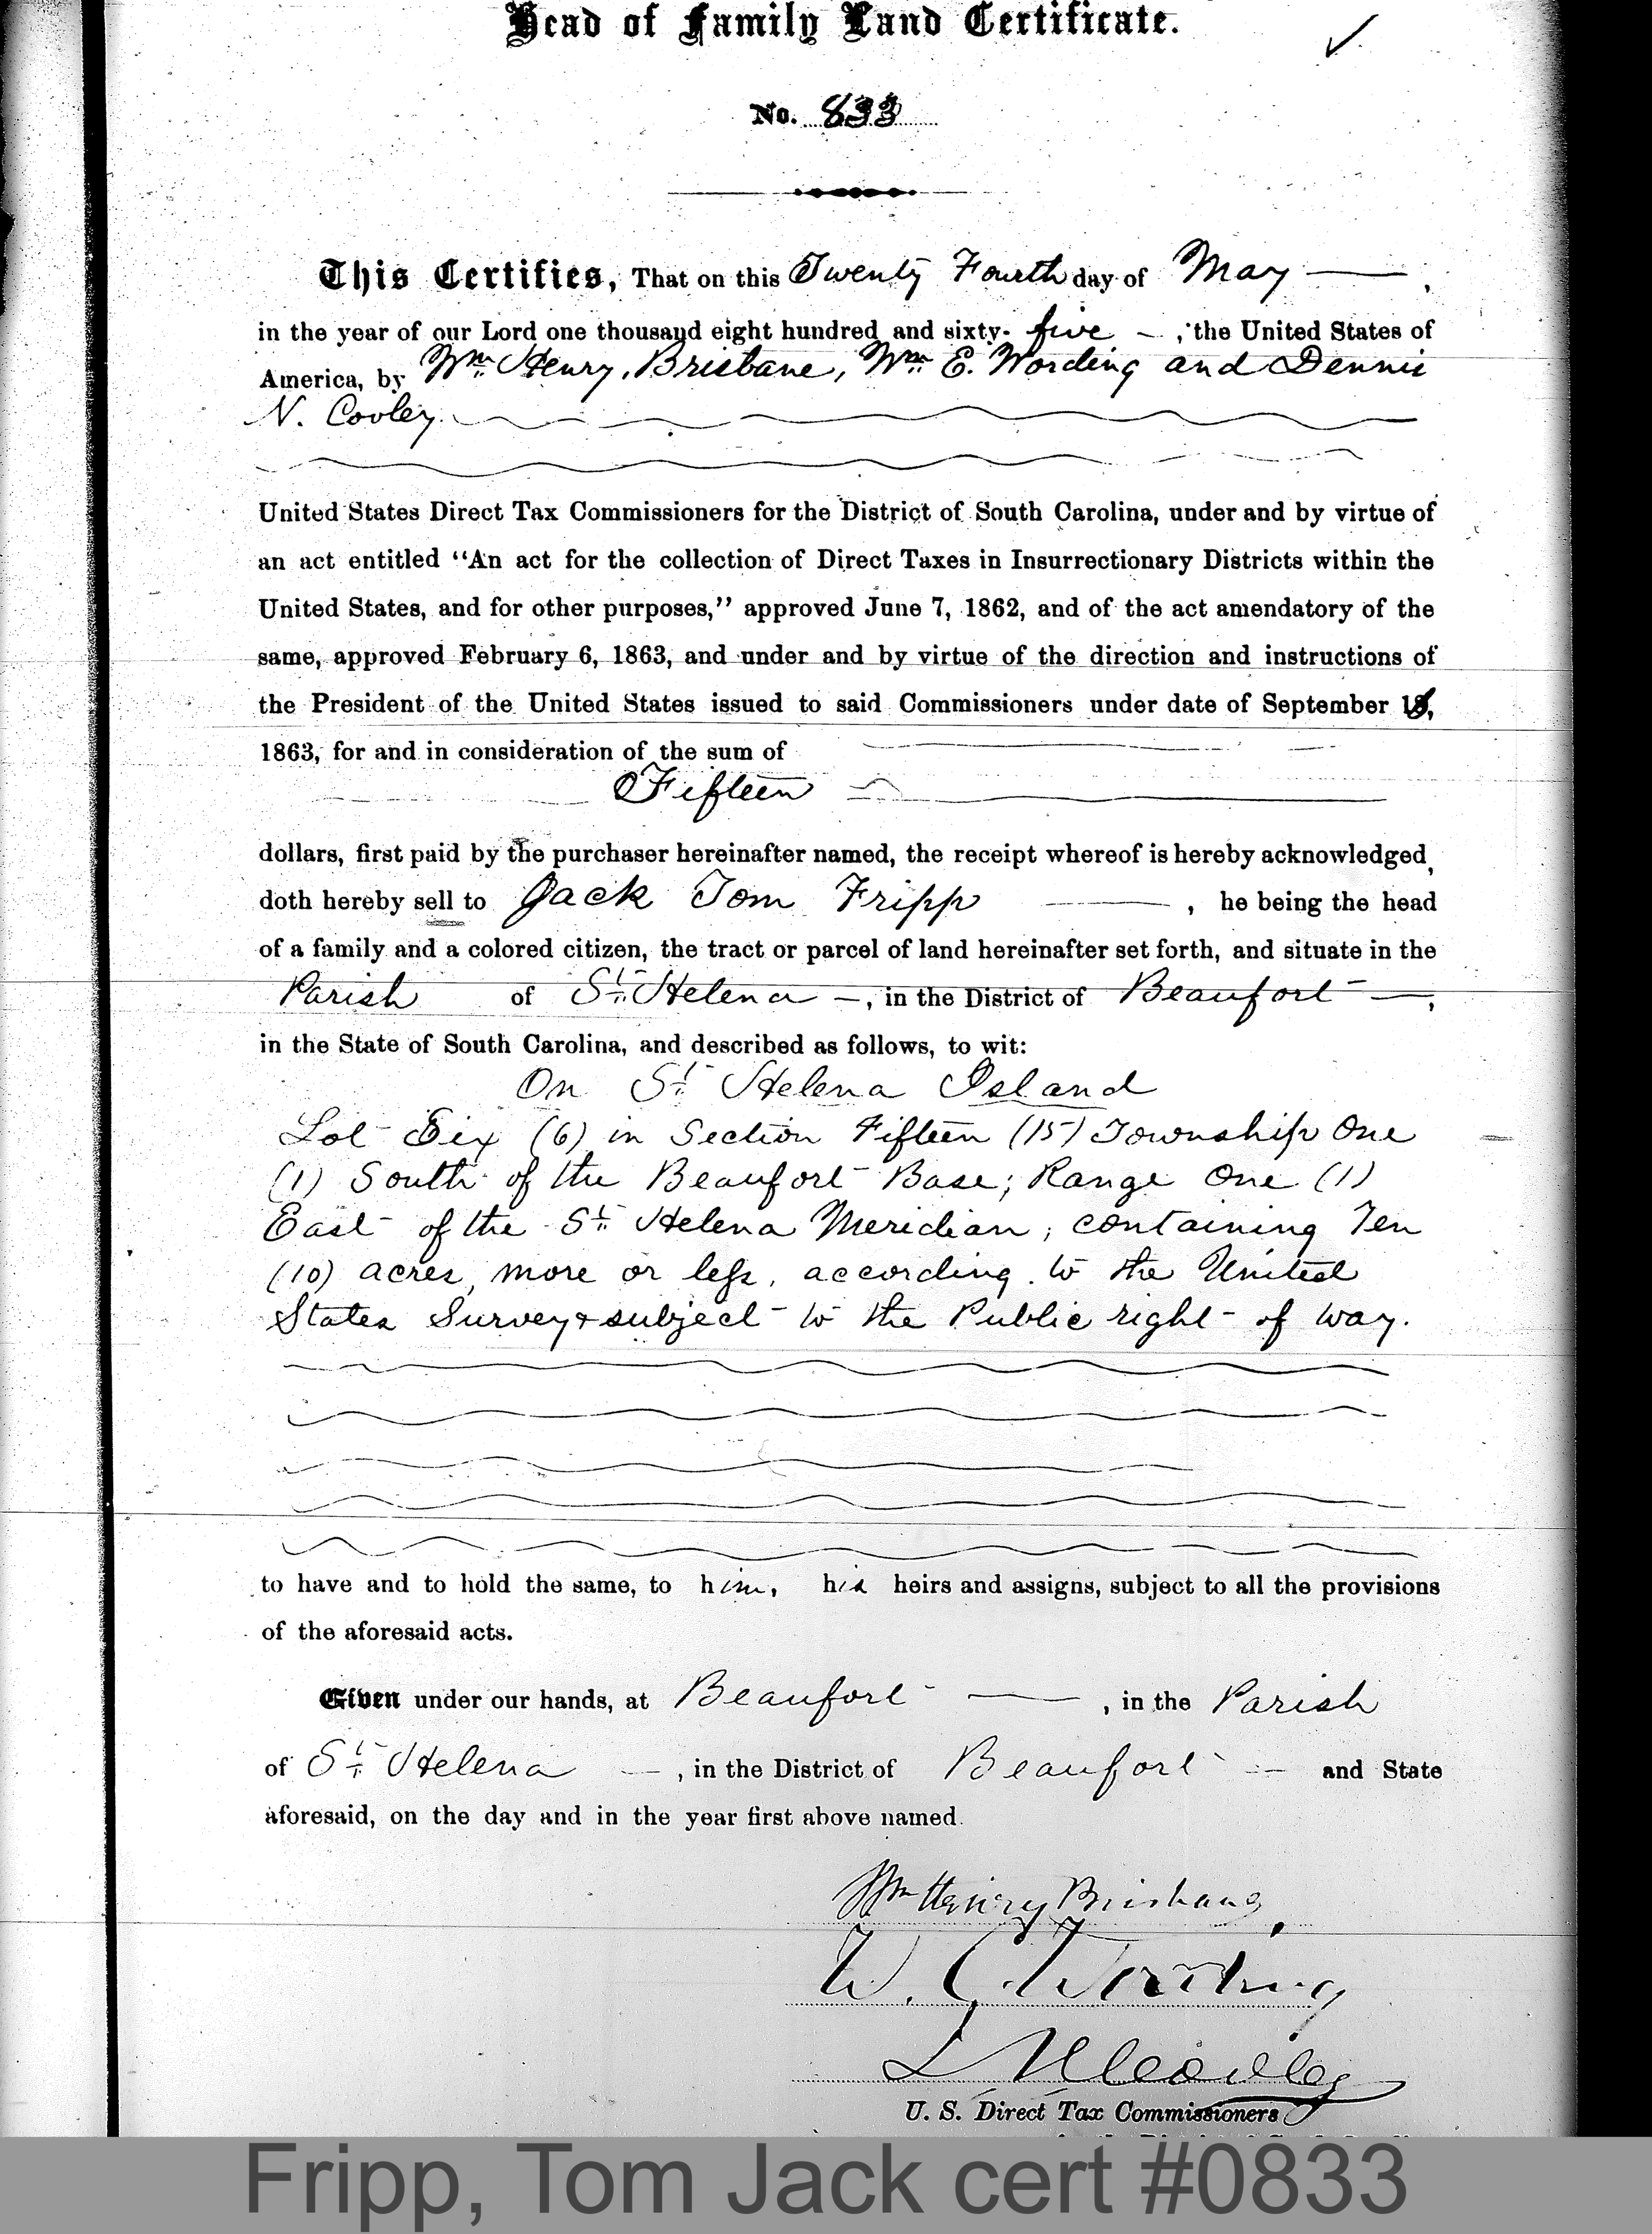 Head of Family Land Certificate.
No. 833
This Certifies, That on this Twenty Fourth day of May
in the year of our Lord one thousand eight hundred and sixty-five, the United States of
America, by Wm. Henry Brisbane, Wm. E. Wording and Dennis
N. Cooley.
United States Direct Tax Commissioners for the District of South Carolina, under and by virtue of
an act entitled "An act for the collection of Direct Taxes in Insurrectionary Districts within the
United States, and for other purposes," approved June 7, 1862, and of the act amendatory of the
same, approved February 6, 1863, and under and by virtue of the direction and instructions of
the President of the United States issued to said Commissioners under date of September
1863, for and in consideration of the sum of
Fifteen
dollars, first paid by the purchaser hereinafter named, the receipt whereof is hereby acknowledged,
doth hereby sell to Jack Tom Fripp, he being the head
of a family and a colored citizen, the tract or parcel of land hereinafter set forth, and situate in the
Parish of St. Helena, in the District of Beaufort,
in the State of South Carolina, and described as follows, to wit:
On St. Helena Island
Lot Six (6) in Section Fifteen (15) Township One
(1) South of the Beaufort Base; Range One (1)
East of the St. Helena Meridian, containing Ten
(10) acres, more or less, according to the United
States Survey & subject to the Public right of way.
to have and to hold the same, to him, his heirs and assigns, subject to all the provisions
of the aforesaid acts.
Given under our hands, at Beaufort, in the Parish
of St. Helena, in the District of Beaufort and State
aforesaid, on the day and in the year first above named.
Wm Henry Brisbane,
W. E. Wording
D N Cooley
U. S. Direct Tax Commissioners
Fripp, Tom Jack cert #0833